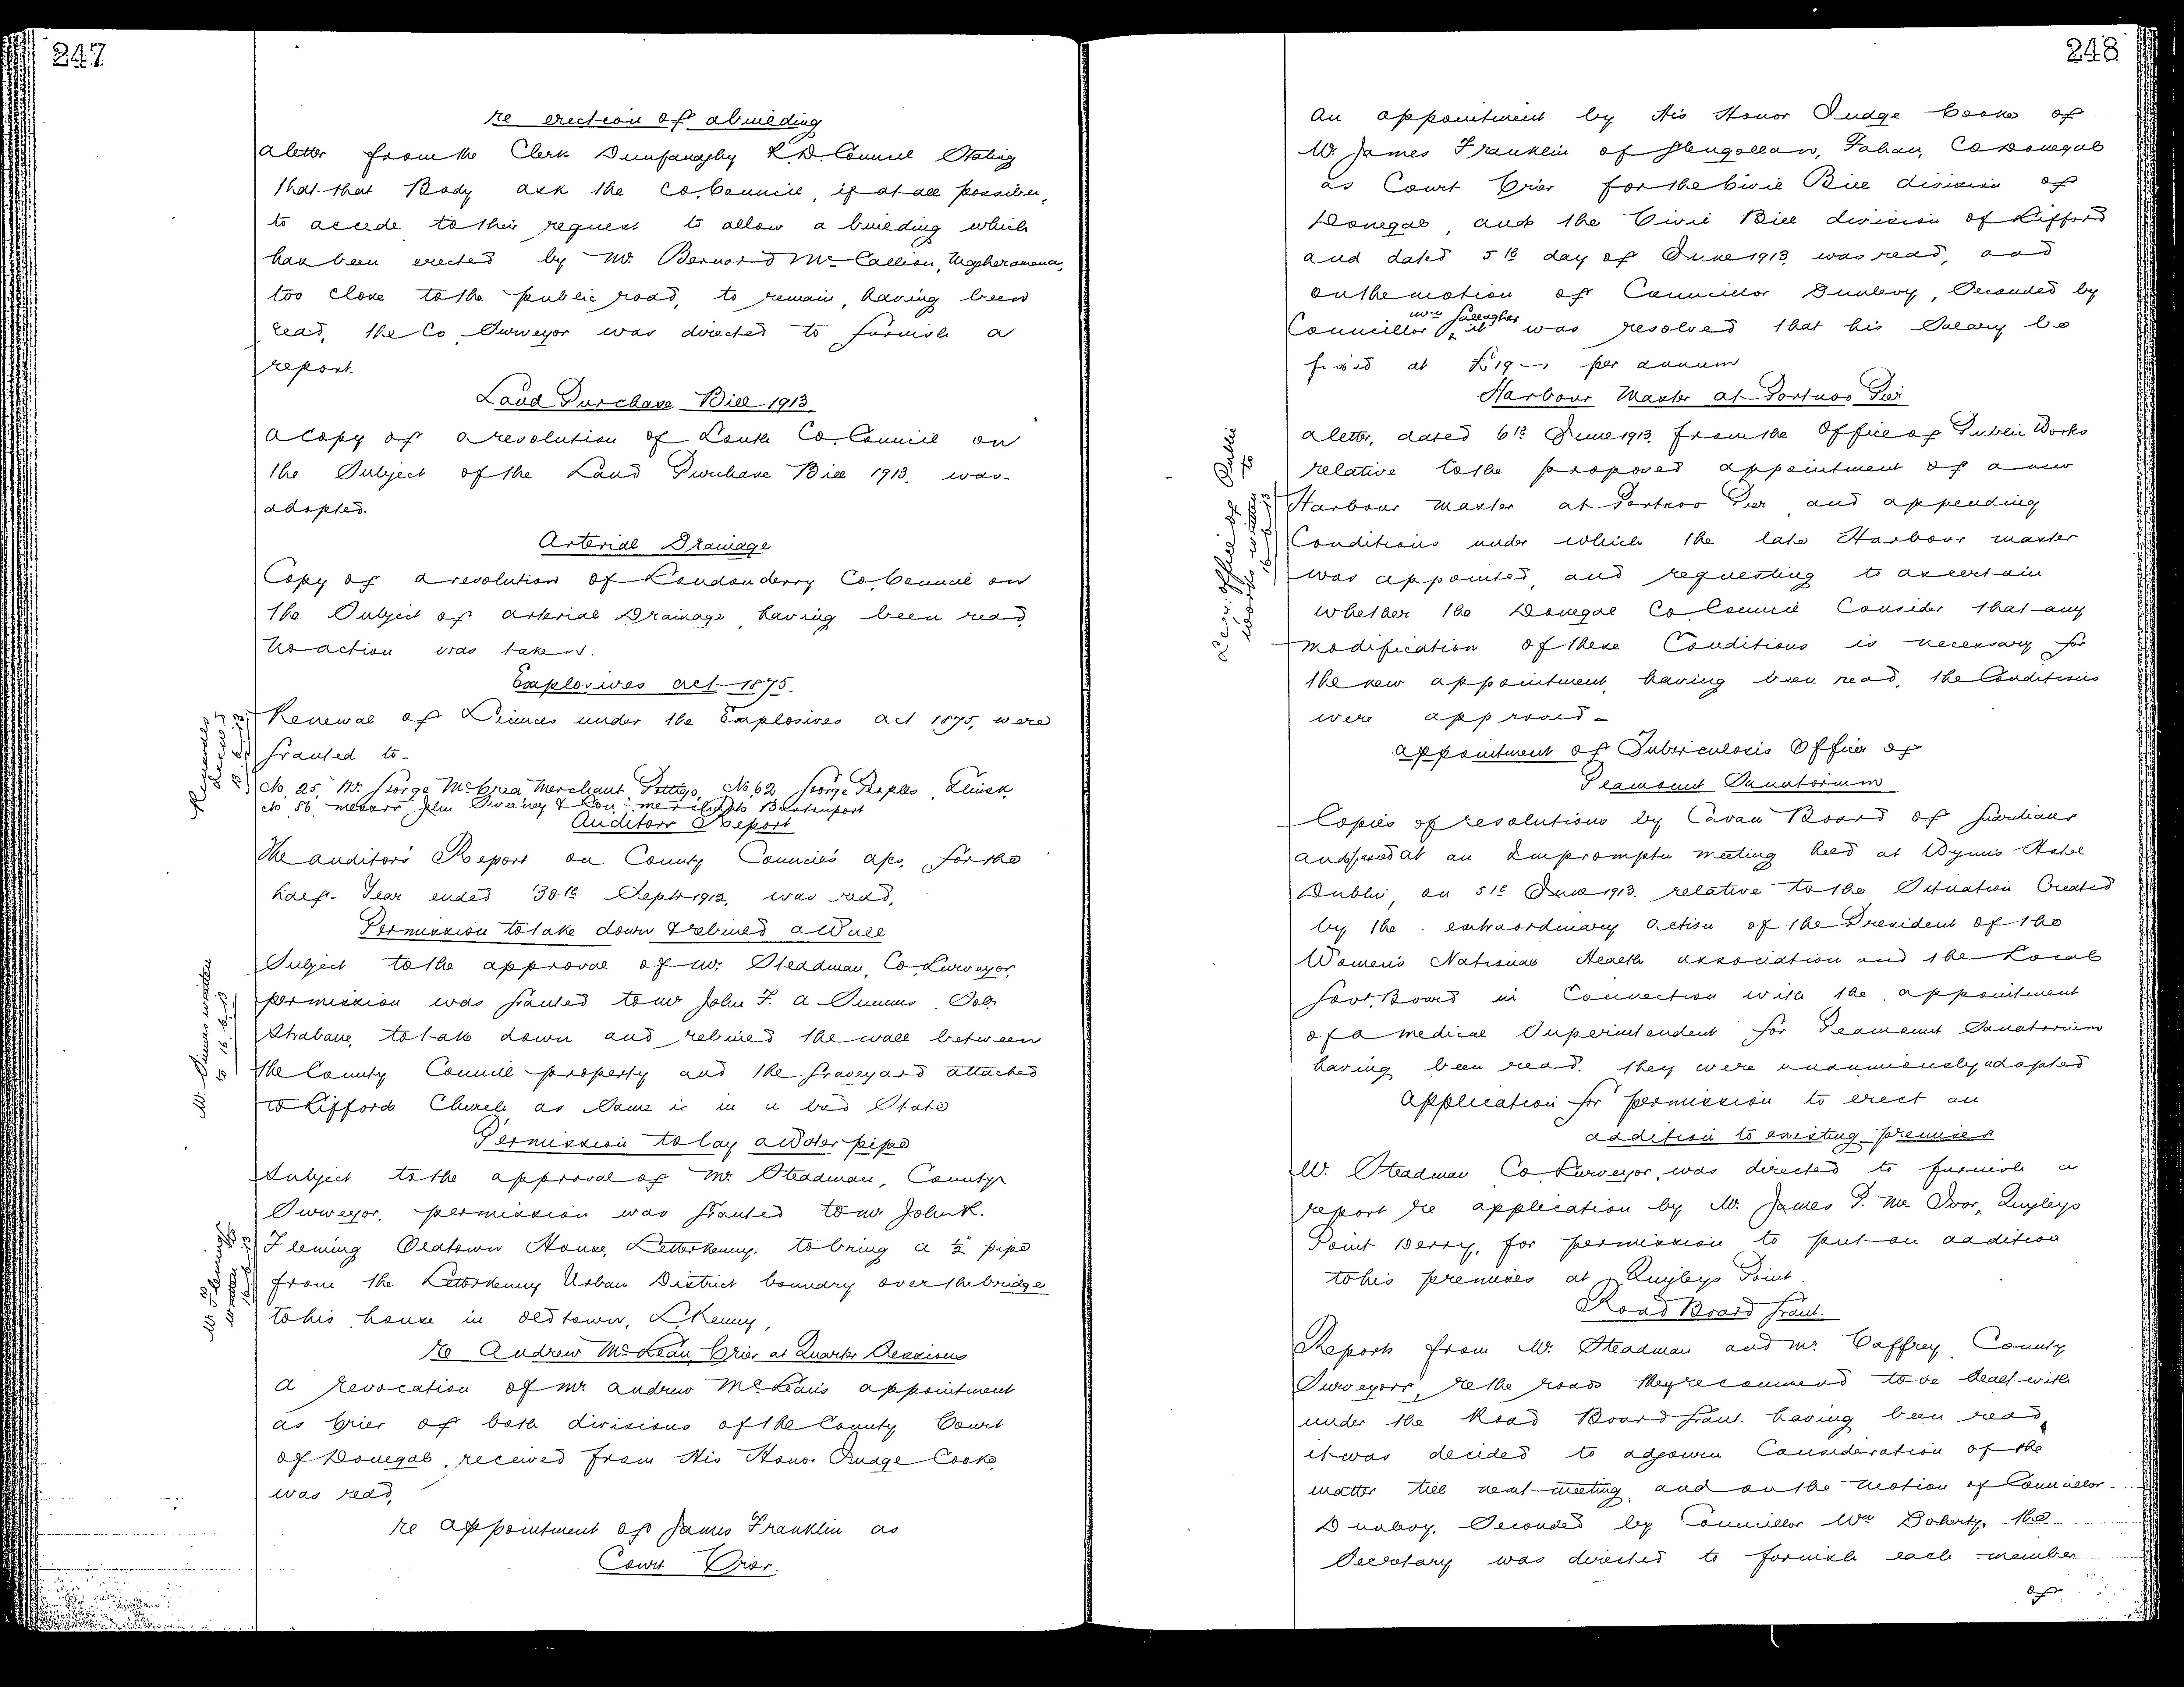 247
re erection of a building
A letter from the Clerk Dunfanaghy R.D. Council Stating
that that Body ask the Co. Council, if at all possible,
to accede to their request to allow a building which
has been erected by Mr. Bernard McCallion,
too close to the public road, to remain, having been
read, the Co. Surveyor was directed to furnish a
report.
Land Purchase Bill 1913
A copy of a resolution of Louth Co. Council on
the Subject of the Land Purchase Bill 1913, was
adopted.
Arterial Drainage
Copy of a resolution of Londonderry Co. Council on
the Subject of Arterial Drainage, having been read
no action was taken.
Explosives Act 1875.
Renewal of Licences under the Explosives Act 1875, were
Granted to-
No. 25, Mr. George McCrea Merchant Pettigo, No. 62 George Peoples,
No. 56, Messrs John Sweeney & Son: merchants Burtonport
Auditors Report
The auditor's Report on County Council's a/cs. for the
half-Year ended 30th Septr 1912, was read,
Permission to take down & rebuild a Wall
Subject to the approval of Mr. Steadman, Co. Surveyor,
permission was granted to Mr John F. A. Simms, Solr.
Strabane, to take down and rebuild the wall between
the County Council property and the Graveyard attached
to Lifford Church, as Same is in a bad State
Mr. Simms written
to 16.6.13
Permission to lay a Water pipe
Subject to the approval of Mr. Steadman, County
Surveyor, permission was granted to Mr John R.
Fleming Oldtown House, Letterkenny, to bring a ½" pipe
from the Letterkenny Urban District boundry over the bridge
to his house in oldtown, L'Kenny,
Mr. Fleming
written to
re Andrew McLean, Crier at Quarter Sessions
A revocation of Mr. Andrew McLean's appointment
as Crier of both divisions of the County Court
of Donegal, received from His Honor Judge Cooke,
was read,
re Appointment of James Franklin as
Court Crier.
248
An appointment by His Honor Judge Cooke of
Mr James Franklin of Glengollan, Fahan, Co Donegal
as Court Crier for the Civil Bill division of
Donegal, and the Civil Bill division of Lifford
and dated 5th day of June 1913, was read, and
on the motion of Councillor Dunlevy, Seconded by
Councillor Wm Gallagher it was resolved that his Salary be
fixed at £19 — per annum
Harbour Master at Portnoo Pier
A letter, dated 6th June 1913, from the Office of Public Works
relative to the proposed appointment of a new
Harbour master at Portnoo Pier, and appending
Conditions under which the late Harbour master
was appointed, and requesting to ascertain
whether the Donegal Co. Council Consider that any
modification of these Conditions is necessary for
the new appointment, having been read, the Conditions
were approved-
Office of Public
Works written to
Appointment of Tuberculosis Officer of
Peamount Sanatorium
Copies of resolutions by Cavan Board of Guardians
and passed at an Impromptu meeting held at Wynn's Hotel
Dublin, on 5th June 1913, relative to the Situation Created
by the extraordinary action of the President of the
Women's National Health association and the Local
Govt. Board in Connection with the appointment
of a medical Superintendent for Peamount Sanatorium
having been read, they were unanimously adopted
Application for permission to erect an
addition to existing premises
Mr. Steadman Co. Surveyor, was directed to furnish a
report re application by Mr. James P. McIvor, Quigleys
Point Derry, for permission to put an addition
to his premises at Quigleys Point.
Road Board Grant.
Reports from Mr. Steadman and Mr. Caffrey, County
Surveyors, re the roads they recommend to be dealt with
under the Road Board Grant, having been read,
it was decided to adjourn Consideration of the
matter till next meeting, and on the motion of Councillor
Dunlevy, Seconded by Councillor Wm Doherty, the
Secretary was directed to furnish each member
of